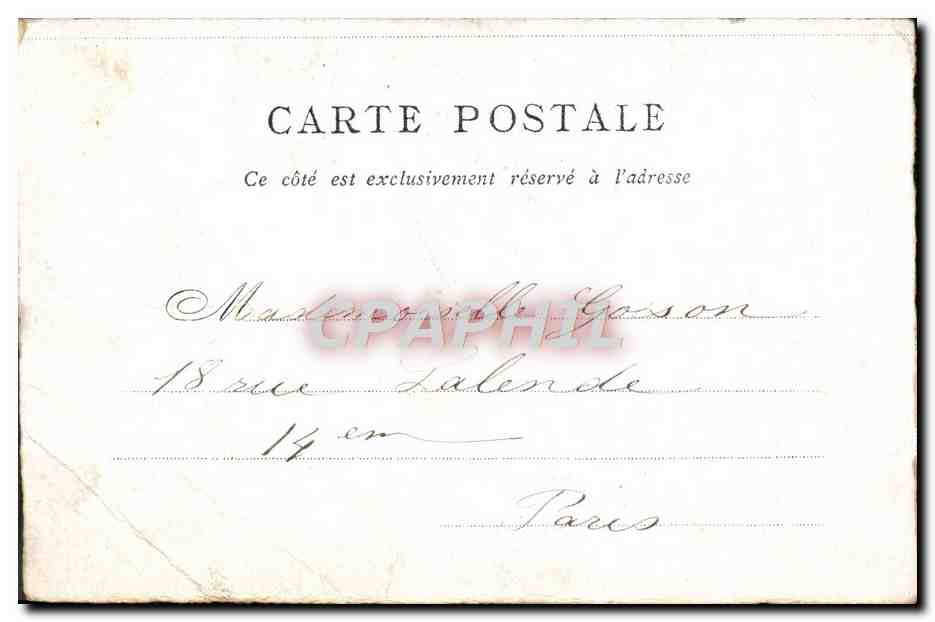 CARTE POSTALE
Ce côté est exclusivement réservé à l'adresse
Mademoiselle Goison
CPAPHIL
18 rue Lalende
14 em
Paris